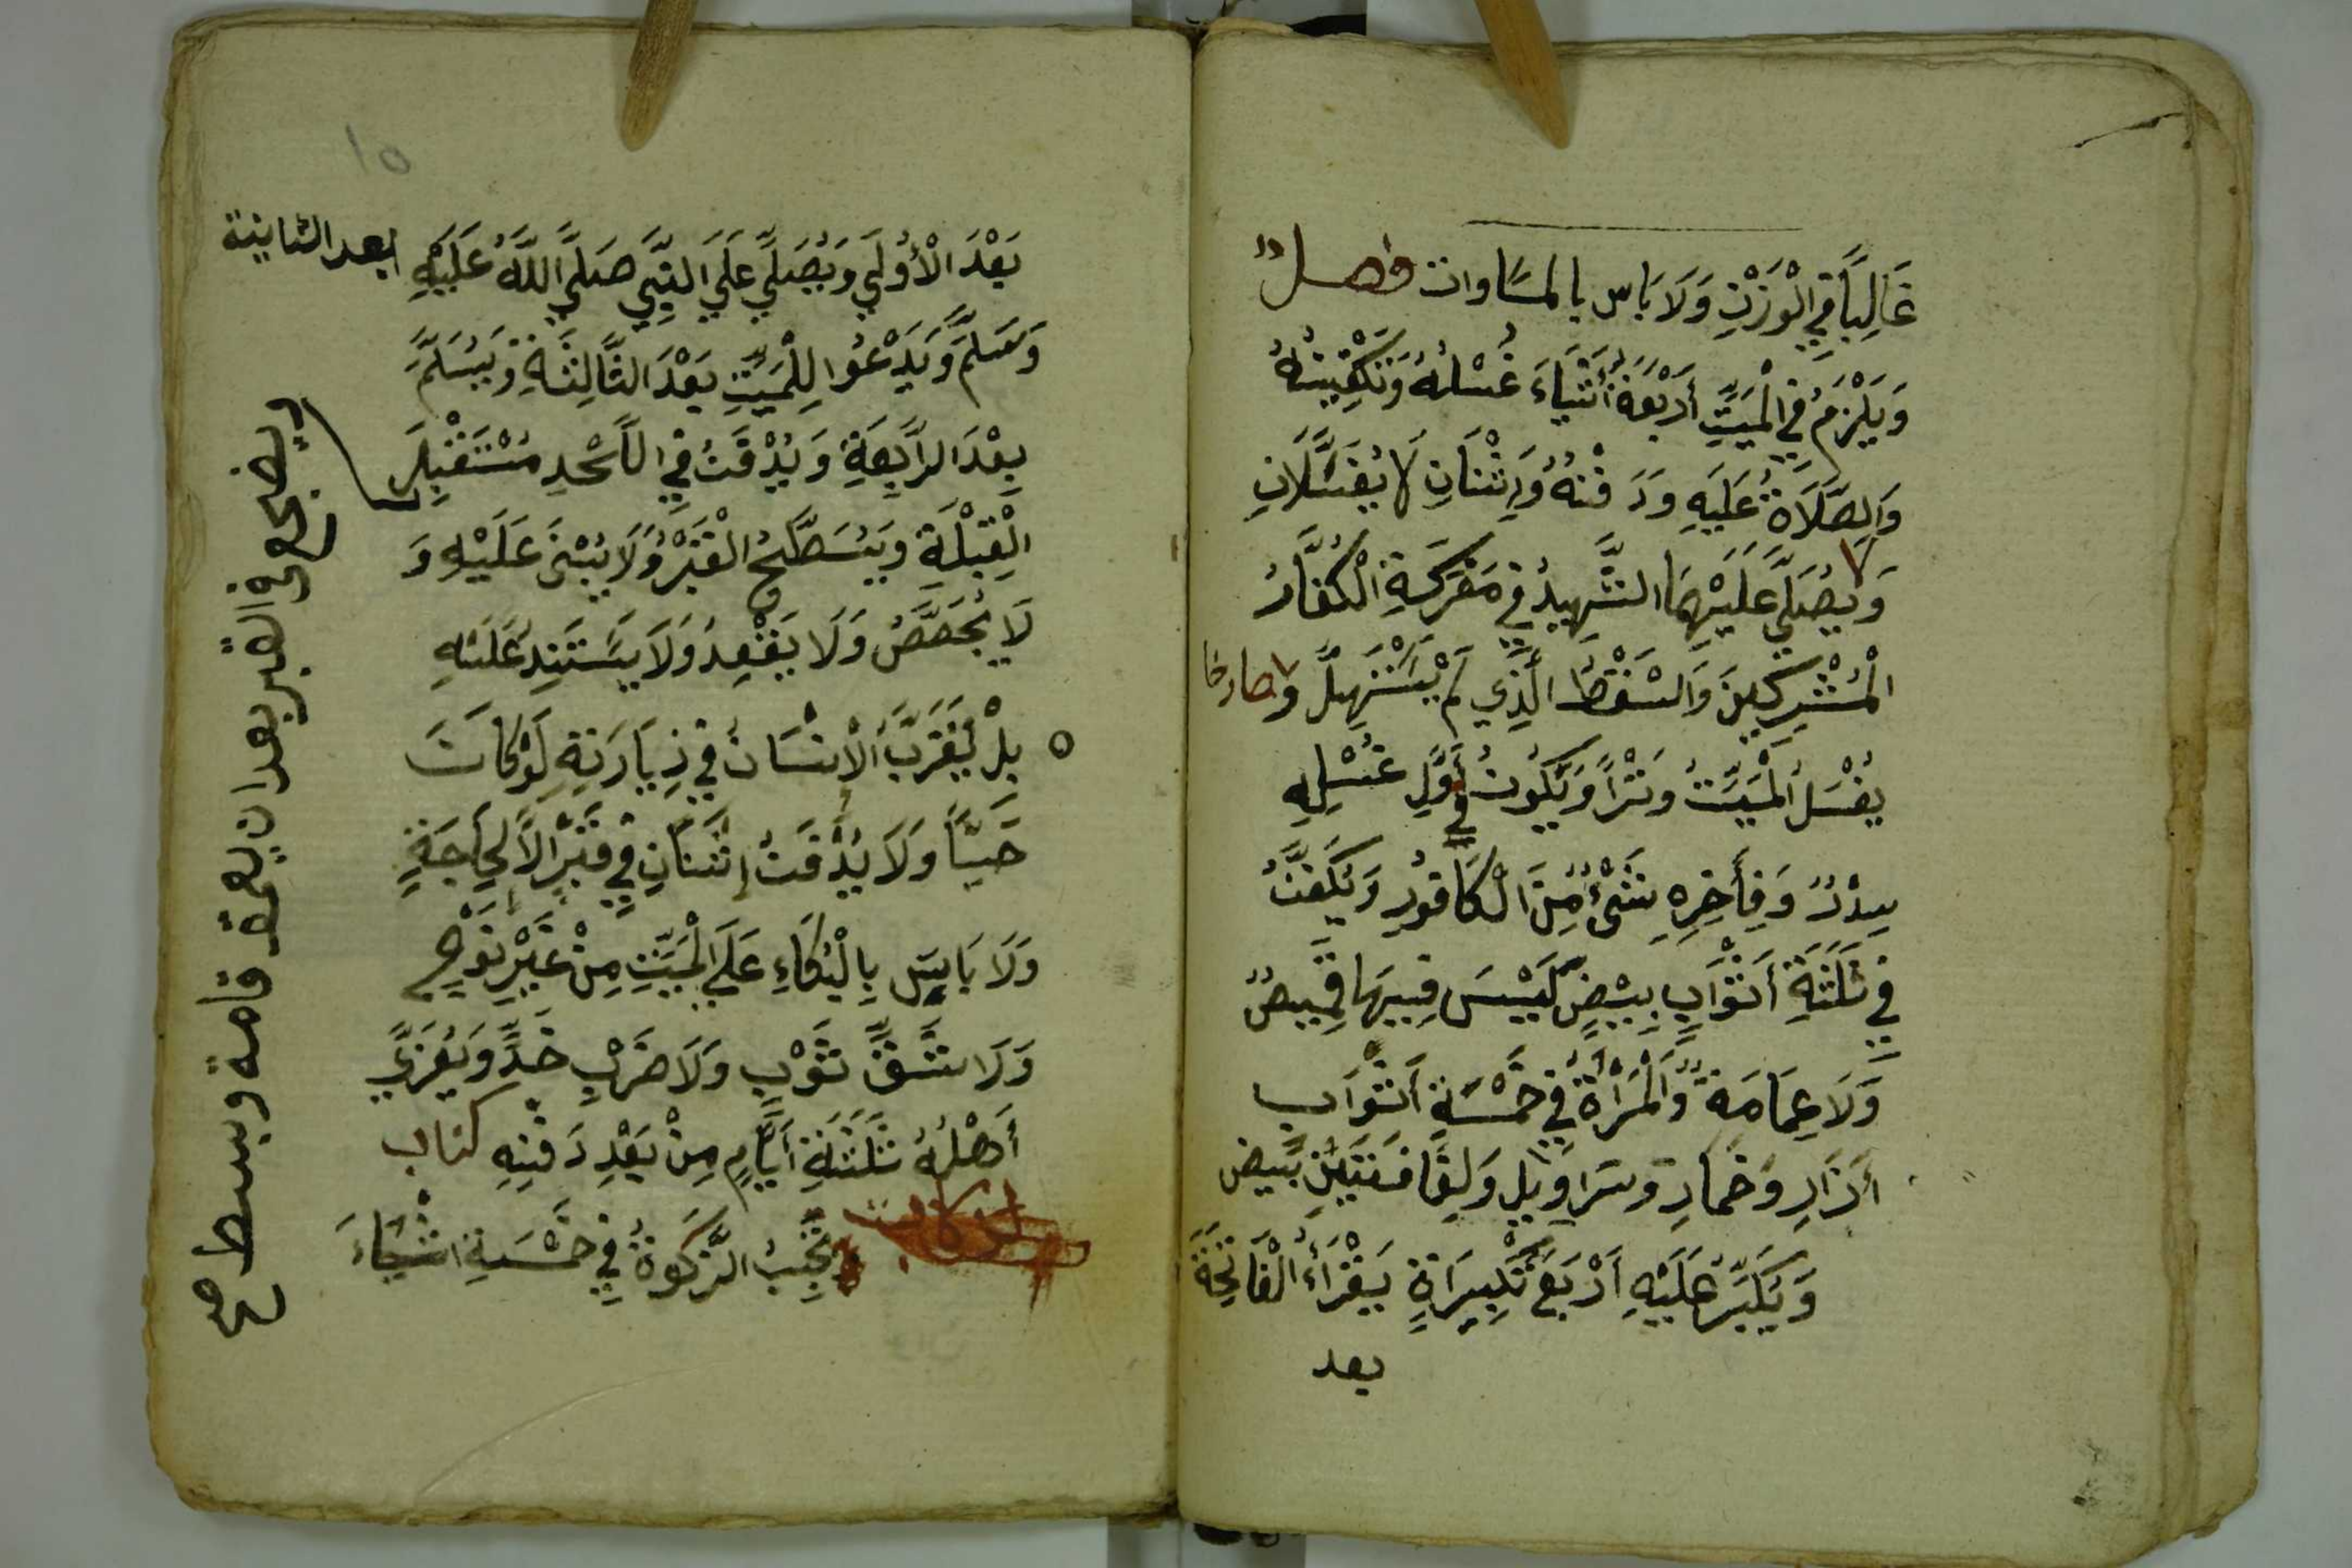 غَالِبًا فِي الْوَزْنِ وَلَا بَاس بالمسَاوات فصل
وَيَلْزَمُ فِي الْمَيِّتِ أَرْبَعَةُ أَشْيَاءَ غُسْلُهُ وَتَكْفِينُهُ
وَالصَّلَاةُ عَلَيهِ وَدَفْنُهُ وَإِثْنَانِ لَا يُغَسَّلَانِ
وَيُصَلَّي عَلَيْهِمَا الشَّهِيدُ فِي مَعْرَكَةِ الْكُفَّارُ
الْمُشْرِكِينَ وَالسَّقْطُ الَّذِي لَمْ يَسْتَهِلَّ
صارخا
و
يُغْسَلُ الْمَيِّتُ وِتْرًا وَيَكُونُ فِي أَوَّلِ غُسْلِهِ
سِدْرٌ وَفِي أَخِرِهِ شَيْءٌ مِنَ الْكَافُورِ وَيُكَفَّنُ
فِي ثَلَثَةِ أَثْوَابٍ بِيْضٍ لَيْسَ فِيهَا قَمِيصٌ
وَلَا عِمَامَةٌ وَالْمَرْأَةُ فِي خَمْسَةِ أَثْوَابٍ
أَزَارِ وَخمَارِ وسَرَاوِيل وَلِفَافَتَيْنِ بَيض
وَيُكَبِّرُ عَلَيْهِ أَرْبَعَ تَكْبِيرَاةٍ يَقْرَأُ الْفَاتِحَةَ
بعد
١٥
بَعْدَ الْأُولَي وَيُصَلِّي عَلَي النَّبِي صَلَّي اللَّهُ عَلَيْهِ
بعد الثانية
وَسَلَّمَ وَيَدْعُوا لِلْمَيِّتِ بَعْدَ الثَّالِثَةِ وَيُسَلِّمُ
بعْدَ الرَّابِعَةِ وَيُدْفَنُ فِي اللَّحْدِ مُسْتَقْبِلَ
الْقِبْلَةِ وَيُسَطَّحُ الْقَبْرُ وَلَا يُبْنَى عَلَيْهِ وَ
لَا يُجَصَّصُ وَلَا يَقْعُدُ وَلَا يَسْتَنِدُ عَلَيْهِ
بلْ يَقْرَبُ الْإنْسَان فِي زِيَارَتِهِ لَوْ كَانَ
حَيًّا وَلَا يُدْفَنُ إِثْنَانِ فِي قَبْرٍ الَّا لِحَاجَةٍ
وَلَا بَاسَ بِالْبُكَاءِ عَلَي الْمَيِّتِ مِنْ غَيْرِ نَوْحٍ
وَلَا شَقِّ ثَوْبٍ وَلَا ضَرْبِ خَدٍّ وَيُعَزَّي
أَهْلُهُ ثَلَثَةِ أَيَّامٍ مِنْ بَعْدِ دَفْنِهِ كتاب
الزكاة
تَجِبُ الزَّكَوةُ فِي خَمْسَةِ اشْيَاءَ
ويضجع في القبر بعد ان يعمق قامة وبسط صح